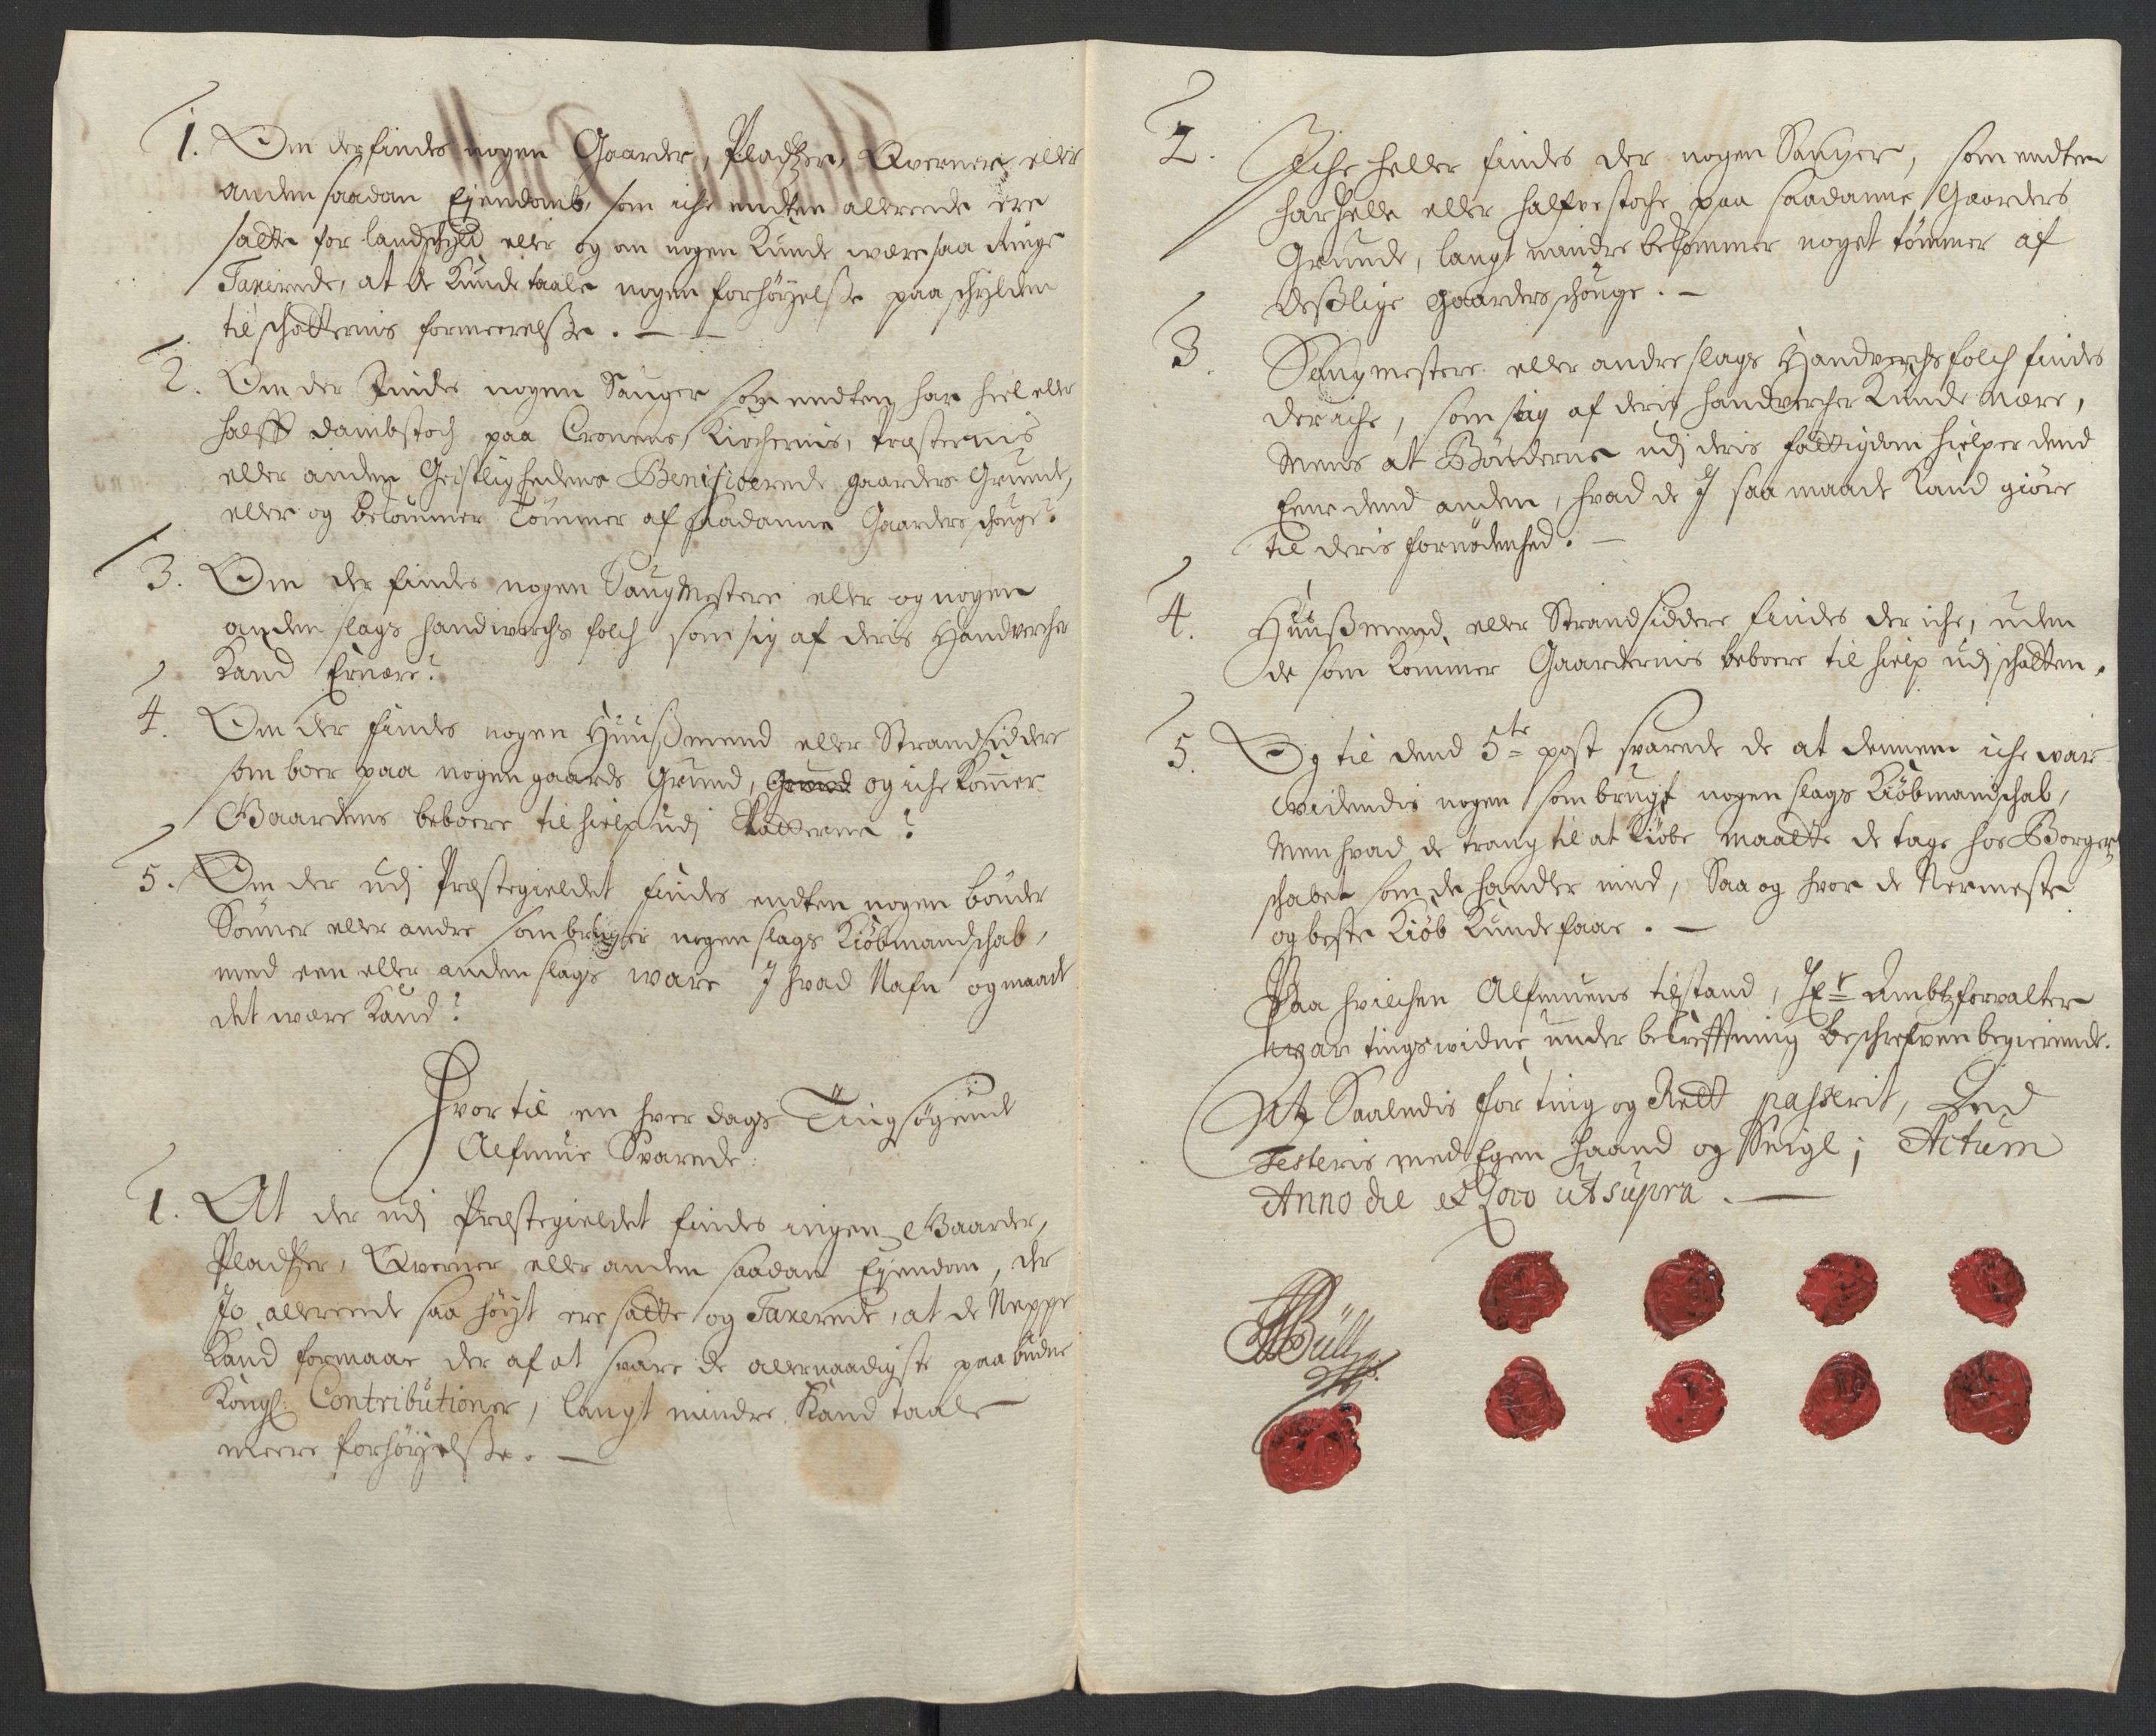 1. Om der findes nogen Gaarder, Pladtzer, Qverner, eller
anden saadan Ejendomb, som iche endten allerrede ere
satte for landschyld eller og om nogen Kunde være saa ringe
Taxerede, at de Kunde taale nogen forhöyelsse paa schylden
til schatternis formeerelsse. —
2. Om der Findes nogen Sauger som endten har heel eller
halff dambstoch paa Cronens, Kirchernis, Presternis
eller anden Geistlighedens Benificerede gaarders Grunde,
eller og bekommer Tömmer af saadanne Gaarders schouge?
3. Om der findes nogen Saugmestere eller og nogen
anden slags handverchs folch som sig af deris Handvercher
Kand Ernære?
4. Om der findes nogen Huusmend eller Strandsiddere
som boer paa nogen gaards Grund, Grund og iche kommer
Gaardens beboere til hielp udj Skatterne?
5. Om der udj Præstegieldet findes endten nogen bönder
Sönner eller andre som bruger nogen slags Kiöbmandschab,
med een eller anden slags ware J hvad Nafn og maade
det være Kand?
Hvortil en hver dags Tingsögende
Allmue Svarede:
1. At der udj Præstegieldet findes ingen Gaarder,
Pladtzer, Qverner eller anden saadan Ejendom, der
Jo allereede saa höyt ere satte og Taxerede, at de Neppe
Kand formaae der af at svare de allernaadigste paabudne
Kongl: Contributioner, langt mindre Kand taale
meere forhöyelsse. —
2. Iche heller findes der nogen Sauger, som endten
har helle eller halfve stoche paa saadanne Gaarders
Grunde, langt mindre bekommer noget tömmer af
desslige gaarders schouge. —
3. Saugmestere eller andre slags Handverchsfolch findes
der iche, som sig af deris handvercher Kunde nære,
Mens at Bönderne udj deris fattigdom hielper dend
Eene dend anden, hvad de J saa maade Kand giöre
til deris fornødenhed. —
4. Huusmend, eller Strandsiddere findes der iche, uden
de som kommer Gaardernis beboere til hielp udj schatten.
5. Og til dend 5te post svarede de at dennem iche var
videndis nogen som brugt nogen slags Kiöbmandschab,
Men hvad de trang til at Kiöbe maatte de tage hos Borger-
schabet som de handler med, Saa og hvor de Nermeste
og beste Kiöb Kunde faae. —
Paa hvilchen Allmuens tilstand, Hr Ambtzforvalter
var tingsvidne under bekrefftning beschrefven begierende.
At Saaledis for ting og Rett passerit,
Testeris med Egen haand og Seigl; Actum
Anno die et Loco ut supra. —
Büll